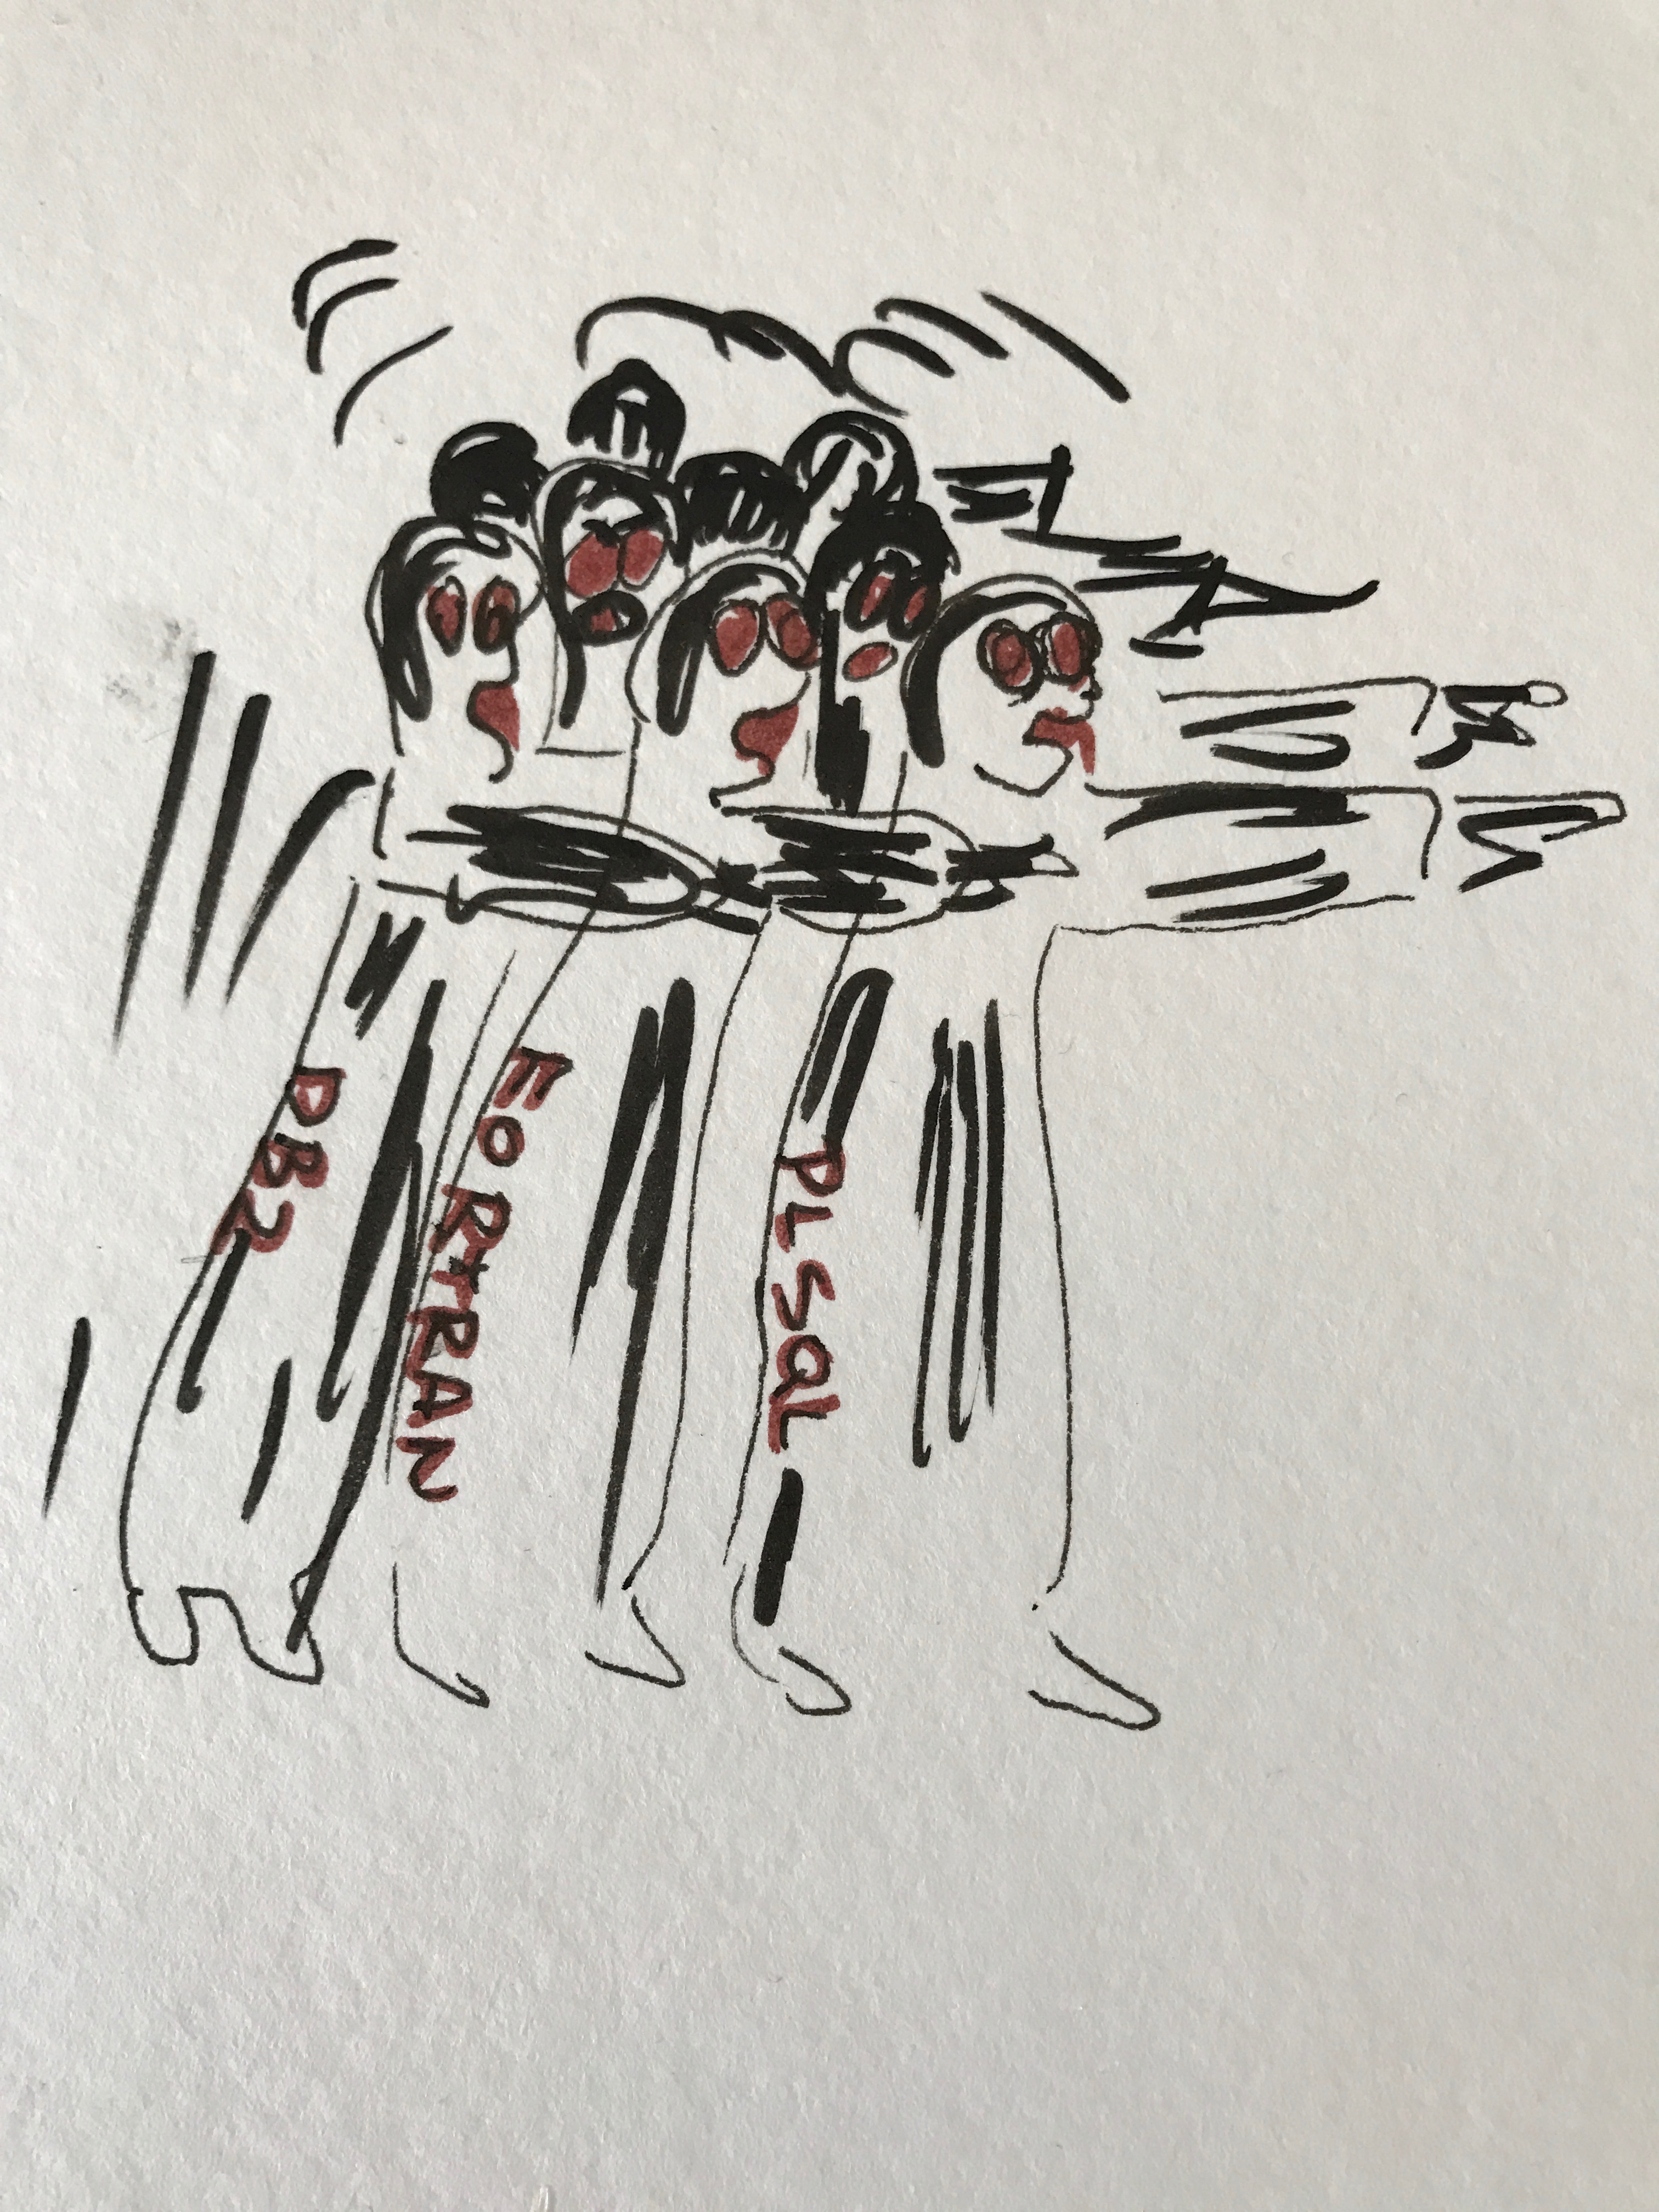 DB2
FORTRAN
PLSQL